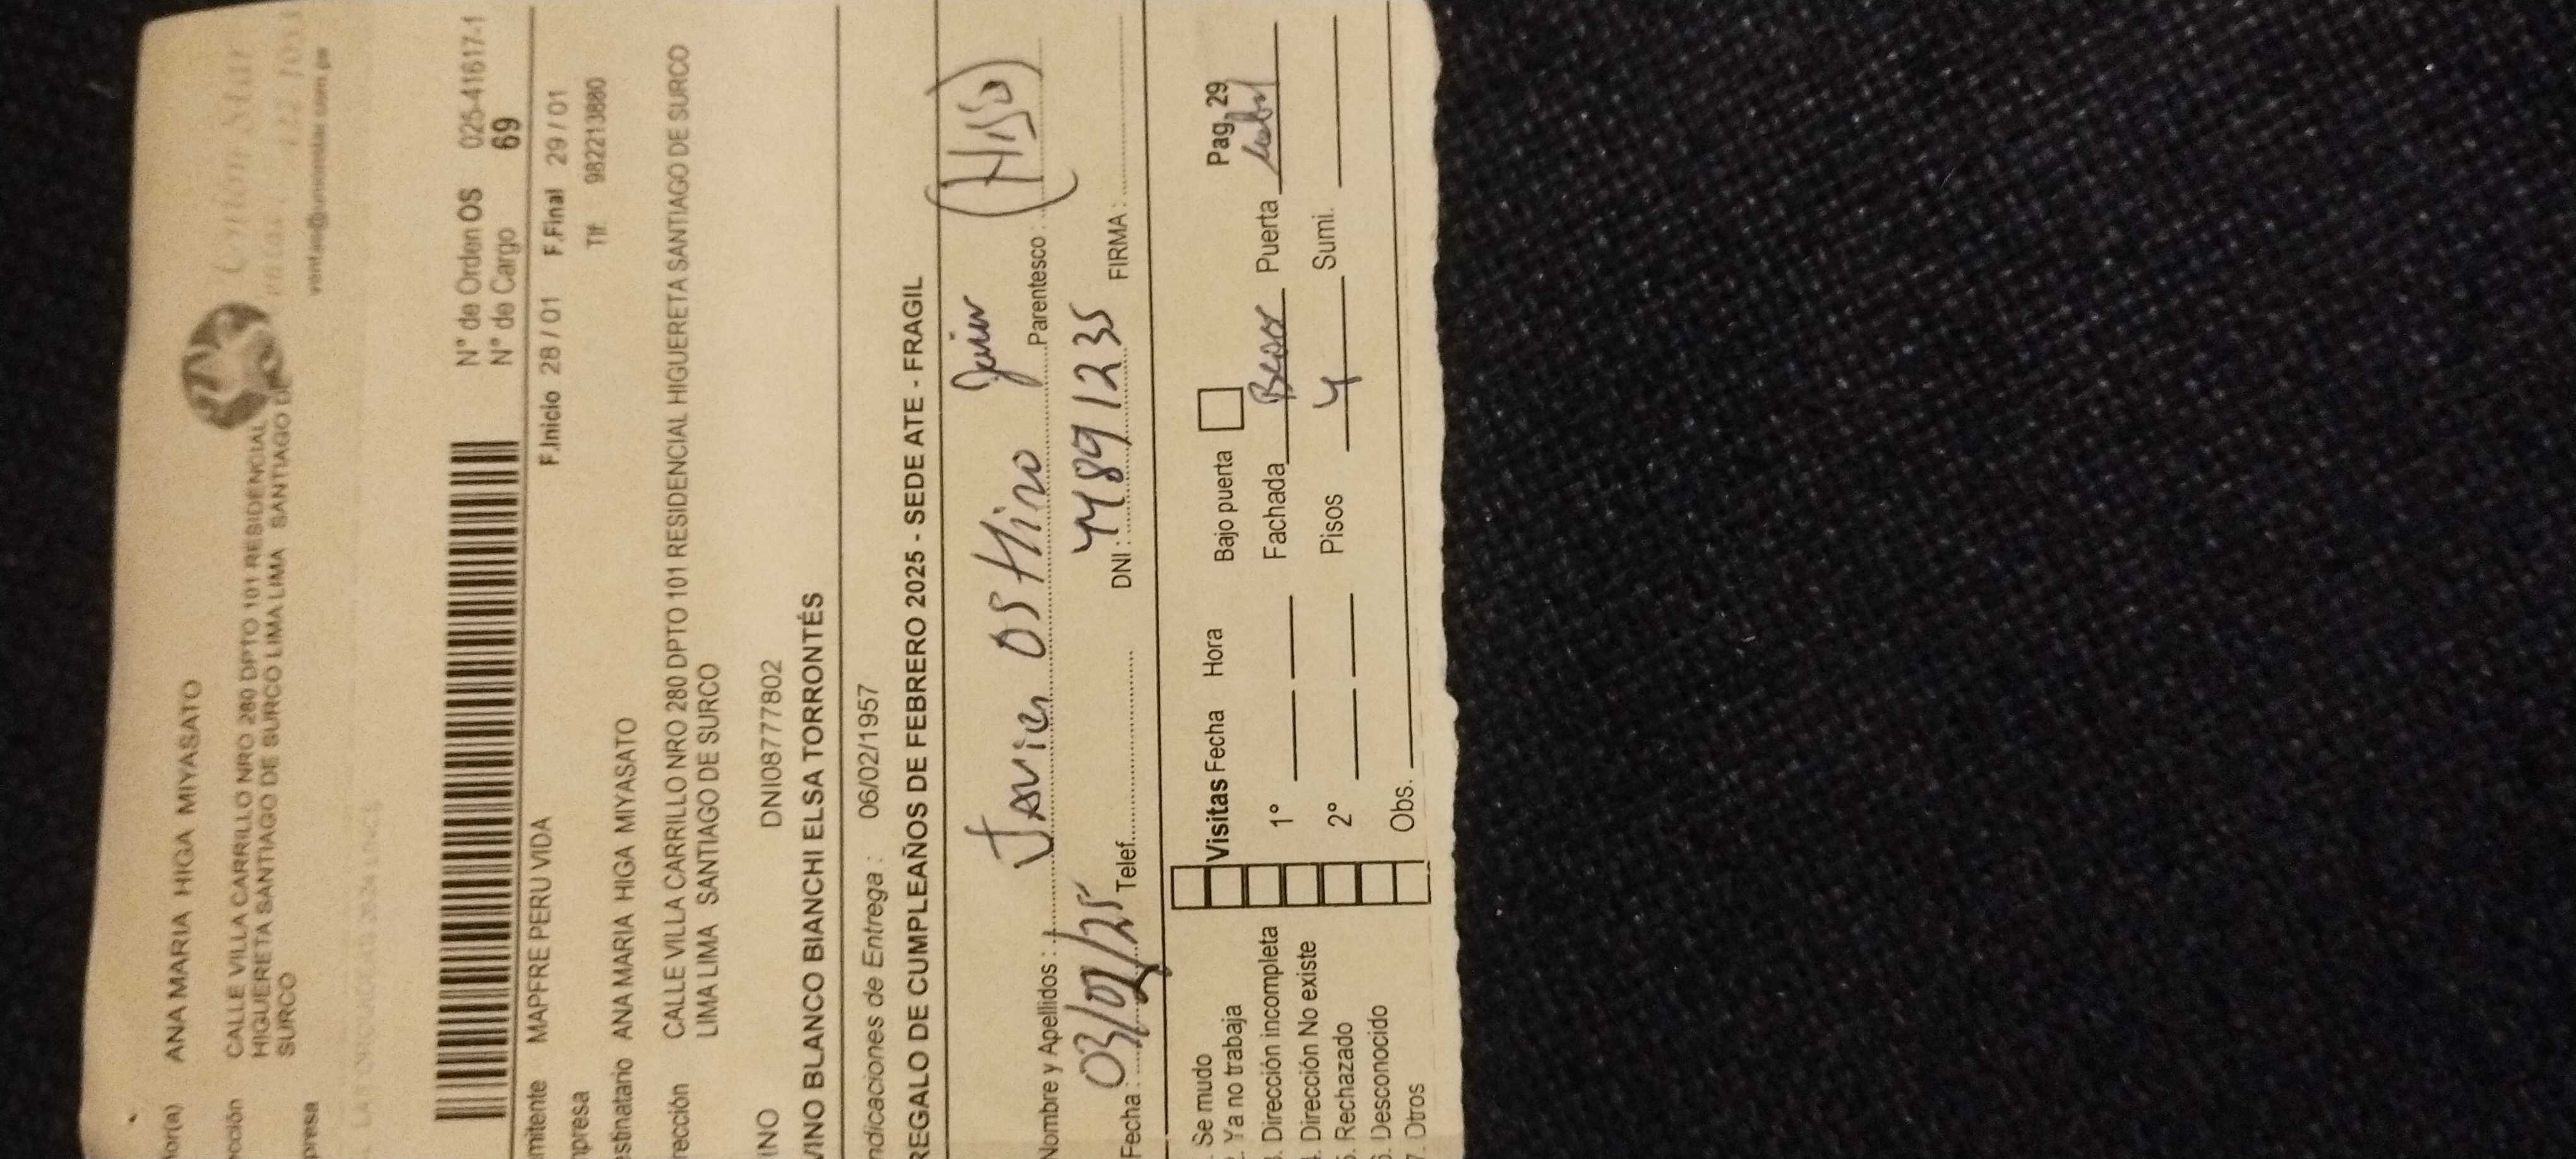 ñor(a) ANA MARIA HIGA MIYASATO
ección CALLE VILLA CARRILLO NRO 280 DPTO 101 RESIDENCIAL
HIGUERETA SANTIAGO DE SURCO LIMA LIMA SANTIAGO DE
SURCO
presa
Union Star
ventas@unionstar.com.pe
N° de Orden OS 025-41617-1
N° de Cargo 69
mitente MAPFRE PERU VIDA F.Inicio 28 / 01 F.Final 29 / 01
mpresa Tlf. 9822213880
estinatario ANA MARIA HIGA MIYASATO
rección CALLE VILLA CARRILLO NRO 280 DPTO 101 RESIDENCIAL HIGUERETA SANTIAGO DE SURCO
LIMA LIMA SANTIAGO DE SURCO
INO DNI08777802
VINO BLANCO BIANCHI ELSA TORRONTÉS
ndicaciones de Entrega : 06/02/1957
REGALO DE CUMPLEAÑOS DE FEBRERO 2025 - SEDE ATE - FRAGIL
Nombre y Apellidos : Javier Parentesco : (Hijo)
Fecha : 03/02/25 Telef. DNI : 44891235 FIRMA :
. Se mudo Visitas Fecha Hora Bajo puerta Pag. 29
2. Ya no trabaja
3. Dirección incompleta 1° Fachada Puerta
4. Dirección No existe 2° Pisos 4 Sumi.
5. Rechazado
6. Desconocido Obs.
7. Otros